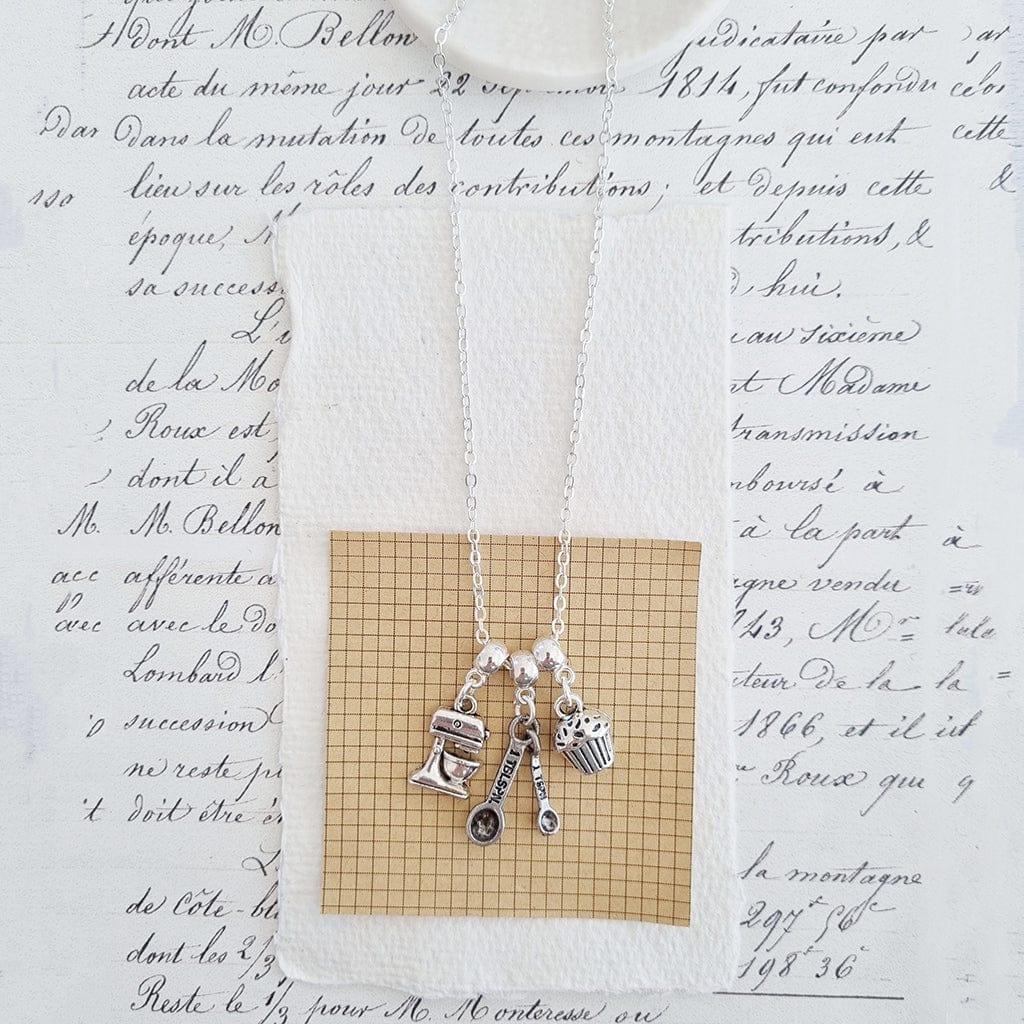 dont M. Bellon judicataire par ar
acte du même jour 22 1814, fut confondu
dans la mutation de toutes ces montagnes qui eut cette
iso lieu sur les rôles des contributions; et depuis cette &
époque, N tributions, &
sa success hui.
L'i au sixième
de la Mo nt Madame
Roux est, transmission
dont il a mboursé à
M. M. Bellon à la part à
acc afférente a agne vendu
avec avec le Do 143, Mr
Lombard l' uteur de la la =
succession 1866, et il
ne reste Roux qui q
't doit être
L. la montagne
de Côte-bl 297f 56c
dont les 2/3 198f 36c
Reste le 1/3 pour M. Monteresse ou
1 TBLSPN
1 TSPN